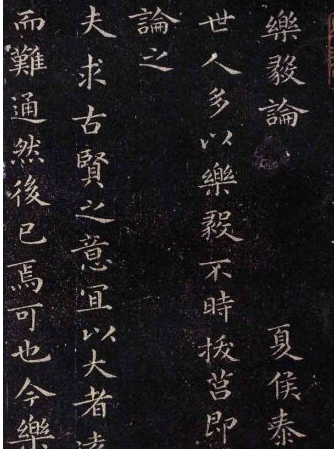 樂毅論 夏侯泰
世人多以樂毅不時拔莒即
論之
夫求古賢之意宜以大者遠
而難通然後已焉可也今樂